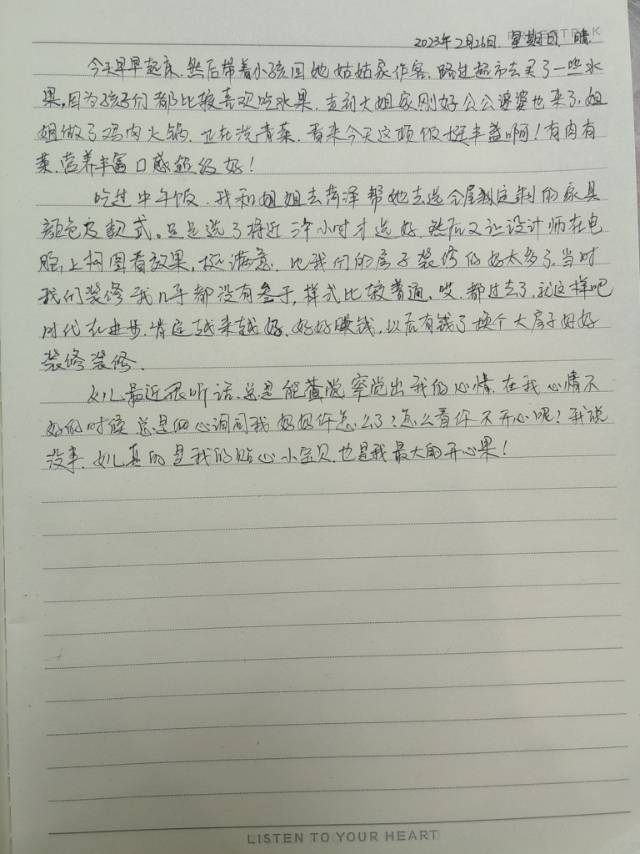 2023年2月26日 星期日 晴
今天早早起床,然后带着小孩回她姑姑家作客,路过超市去买了一些水
果,因为孩子们都比较喜欢吃水果.去到大姐家刚好公公婆婆也来了,姐
姐做了鸡肉火锅.正在洗青菜.看来今天这顿饭挺丰盛啊!有肉有
菜.营养丰富口感超级好!
吃过中午饭.我和姐姐去菏泽帮她去选全屋定制的家具
颜色及款式。足足选了将近三个小时才选好.然后又让设计师在电
脑上构图看效果,挺满意.比我们的房子装修的好太多了,当时
我们装修我几乎都没有参于,样式比较普通,哎.都过去了,就这样吧
时代在进步.肯定越来越好.好好赚钱.以后有钱了换个大房子好好
装修装修.
女儿最近很听话.总是能察觉出我的心情.在我心情不
好的时候总是细心询问我妈妈你怎么了?怎么看你不开心呢!我说
没事.女儿真的是我的贴心小宝贝.也是我最大的开心果!
LISTEN TO YOUR HEART